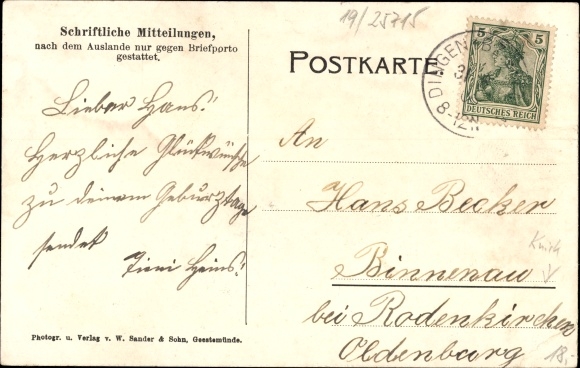 Schriftliche Mitteilungen,
nach dem Auslande nur gegen Briefporto
gestattet.
19/25715
POSTKARTE
5 5
DEUTSCHES REICH
DINGEN
8-12N
Lieber Hans!
Herzliche Glückwünsche
zu deinem Geburtztage
sendet
Heins!
An
Hans Becker
Binnenau
bei Rodenkirchen
Oldenburg
18.-
Photogr. u. Verlag v. W. Sander & Sohn, Geestemünde.